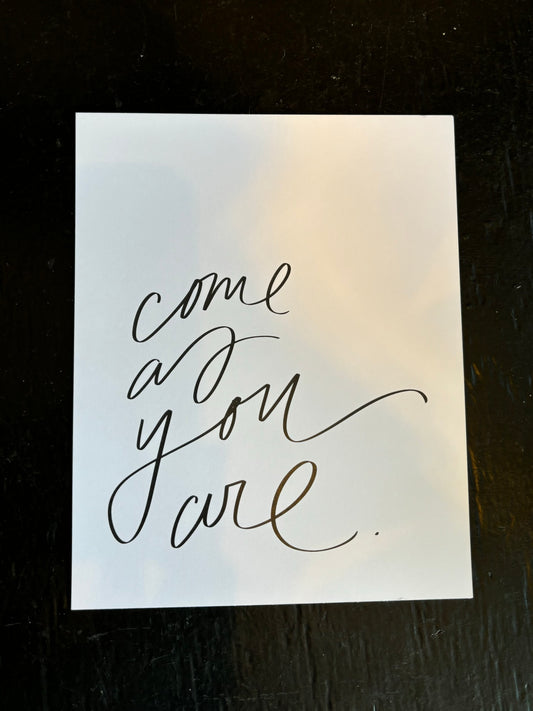 come
as
you
are.